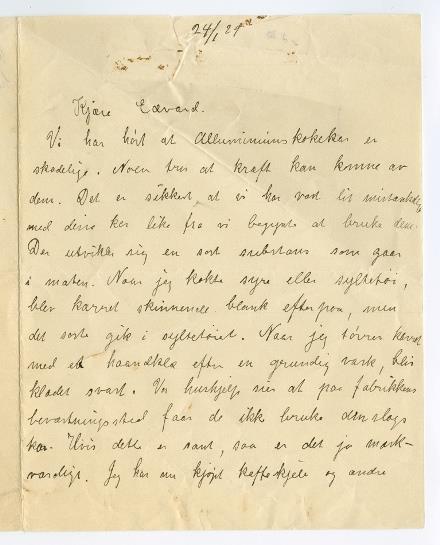 24/1 29
Kjære Edvard.
Vi har hørt at Alluminiumskokekar er
skadelige. Noen tror at kraft kan komme av
dem. Det er sikkert at vi har vært lit mistænkelig
med disse kar like fra vi begynte at bruke dem.
Der utvikler sig en sort substans som gaar
i maten. Naar jeg kokte syre eller syltetøi,
blev karret skinnende blank efterpaa, men
det sorte gik i syltetøiet. Naar jeg tørrer karret
med et haandklæ efter en grundig vask, blir
klædet svart. Vor hushjelp sier at paa fabrikkens
beværtningssted faar de ikke bruke denslags
kar. Hvis dette er sant, saa er det jo mærk-
værdigt. Jeg har nu kjøpt kaffekjele og andre